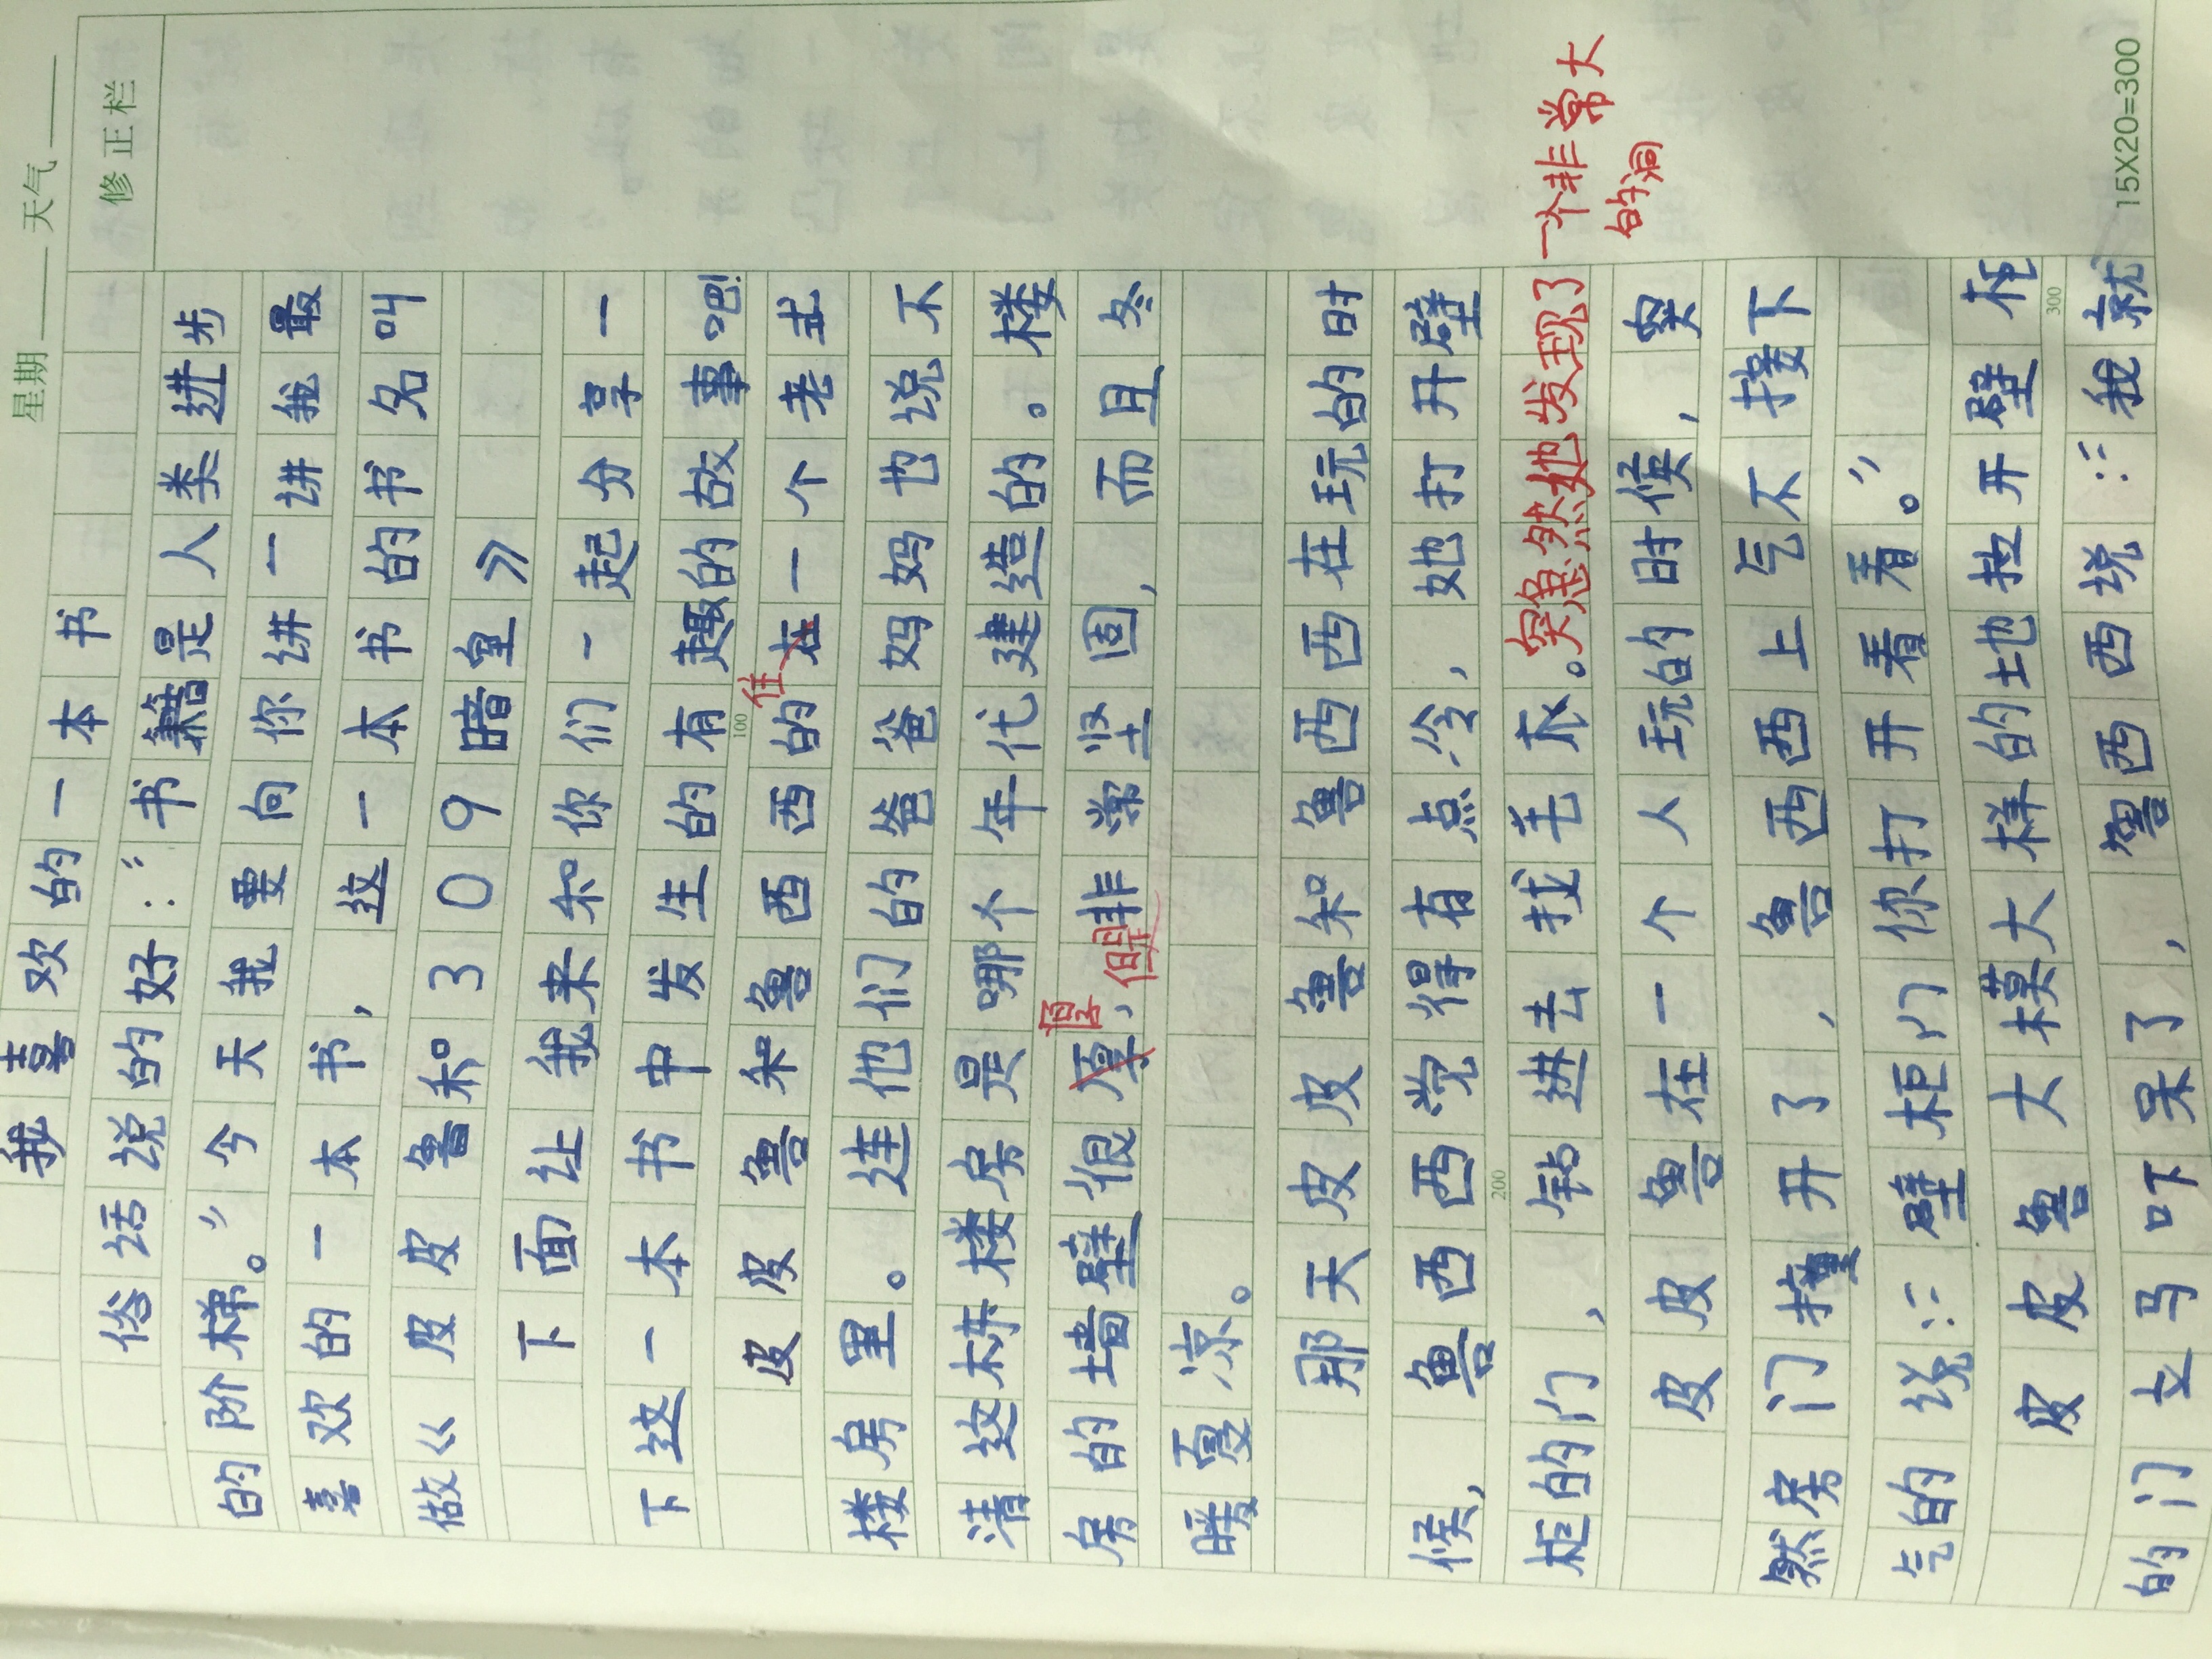 星期 天气
修正栏
我喜欢的一本书
俗话说的好:“书籍是人类进步
的阶梯。”今天我要向你讲一讲我最
喜欢的一本书,这一本书的书名叫
做《皮皮鲁和309暗室》
下面让我来和你们一起分享一
下这一本书中发生的有趣的故事吧!
100
住
皮皮鲁和鲁西西的在一个老式
楼房里。连他们的爸爸妈妈也说不
清这栋楼房是哪个年代建造的。楼
厚
房的墙壁很原,但非常坚固,而且冬
暖夏凉。
那天皮皮鲁和鲁西西在玩的时
候,鲁西西觉得有点冷,她打开壁
200
柜的门,钻进去找毛衣。突然她发现了一个非常大
的洞
皮皮鲁在一个人玩的时候,突
然房门撞开了,鲁西西上气不接下
气的说:“壁柜门你打开看看。”
皮皮鲁大模大样的地拉开壁柜
300
的门立马吓呆了,鲁西西说:“我就
15X20=300